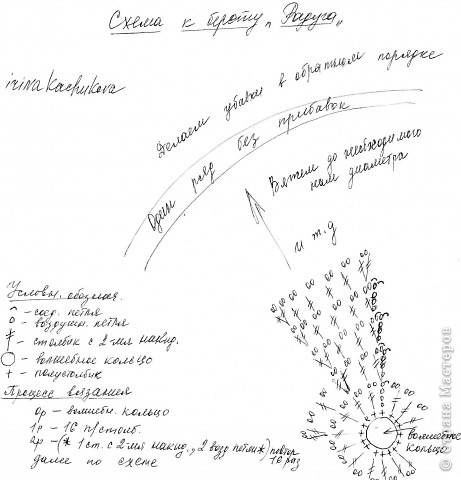 Схема к берету „Радуга„
irina kachukova
Делаем убавки в обратном порядке
Один ряд без прибавок
Вяжем до необходимого
нам диаметра
и т.д
Условн. обознач.
⌢ - соед. петля
o - воздушн. петля
- столбик с 2-мя накид.
○ - волшебное кольцо
+ - полустолбик
Процесс вязания
0р - волшебн. кольцо
1р - 16 п/столб.
2р - (* 1 ст. с 2-мя накид., 2 возд петли *) повтор
16 раз
далее по схеме
волшебное
кольцо
© Страна Мастеров